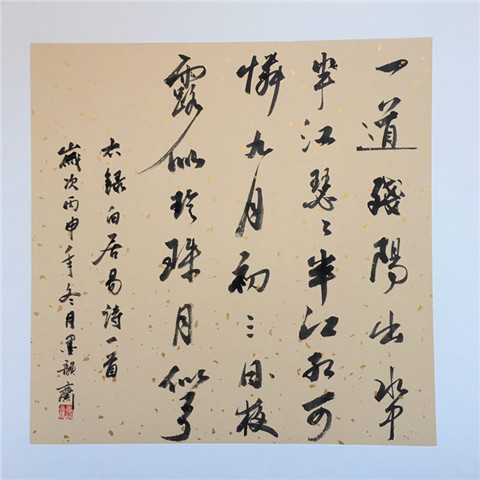 一道殘陽出水中
半江瑟々半江紅可
憐九月初三日夜
露似珍珠月似弓
右録白居易詩一首
歲次丙申年冬月墨韻齋